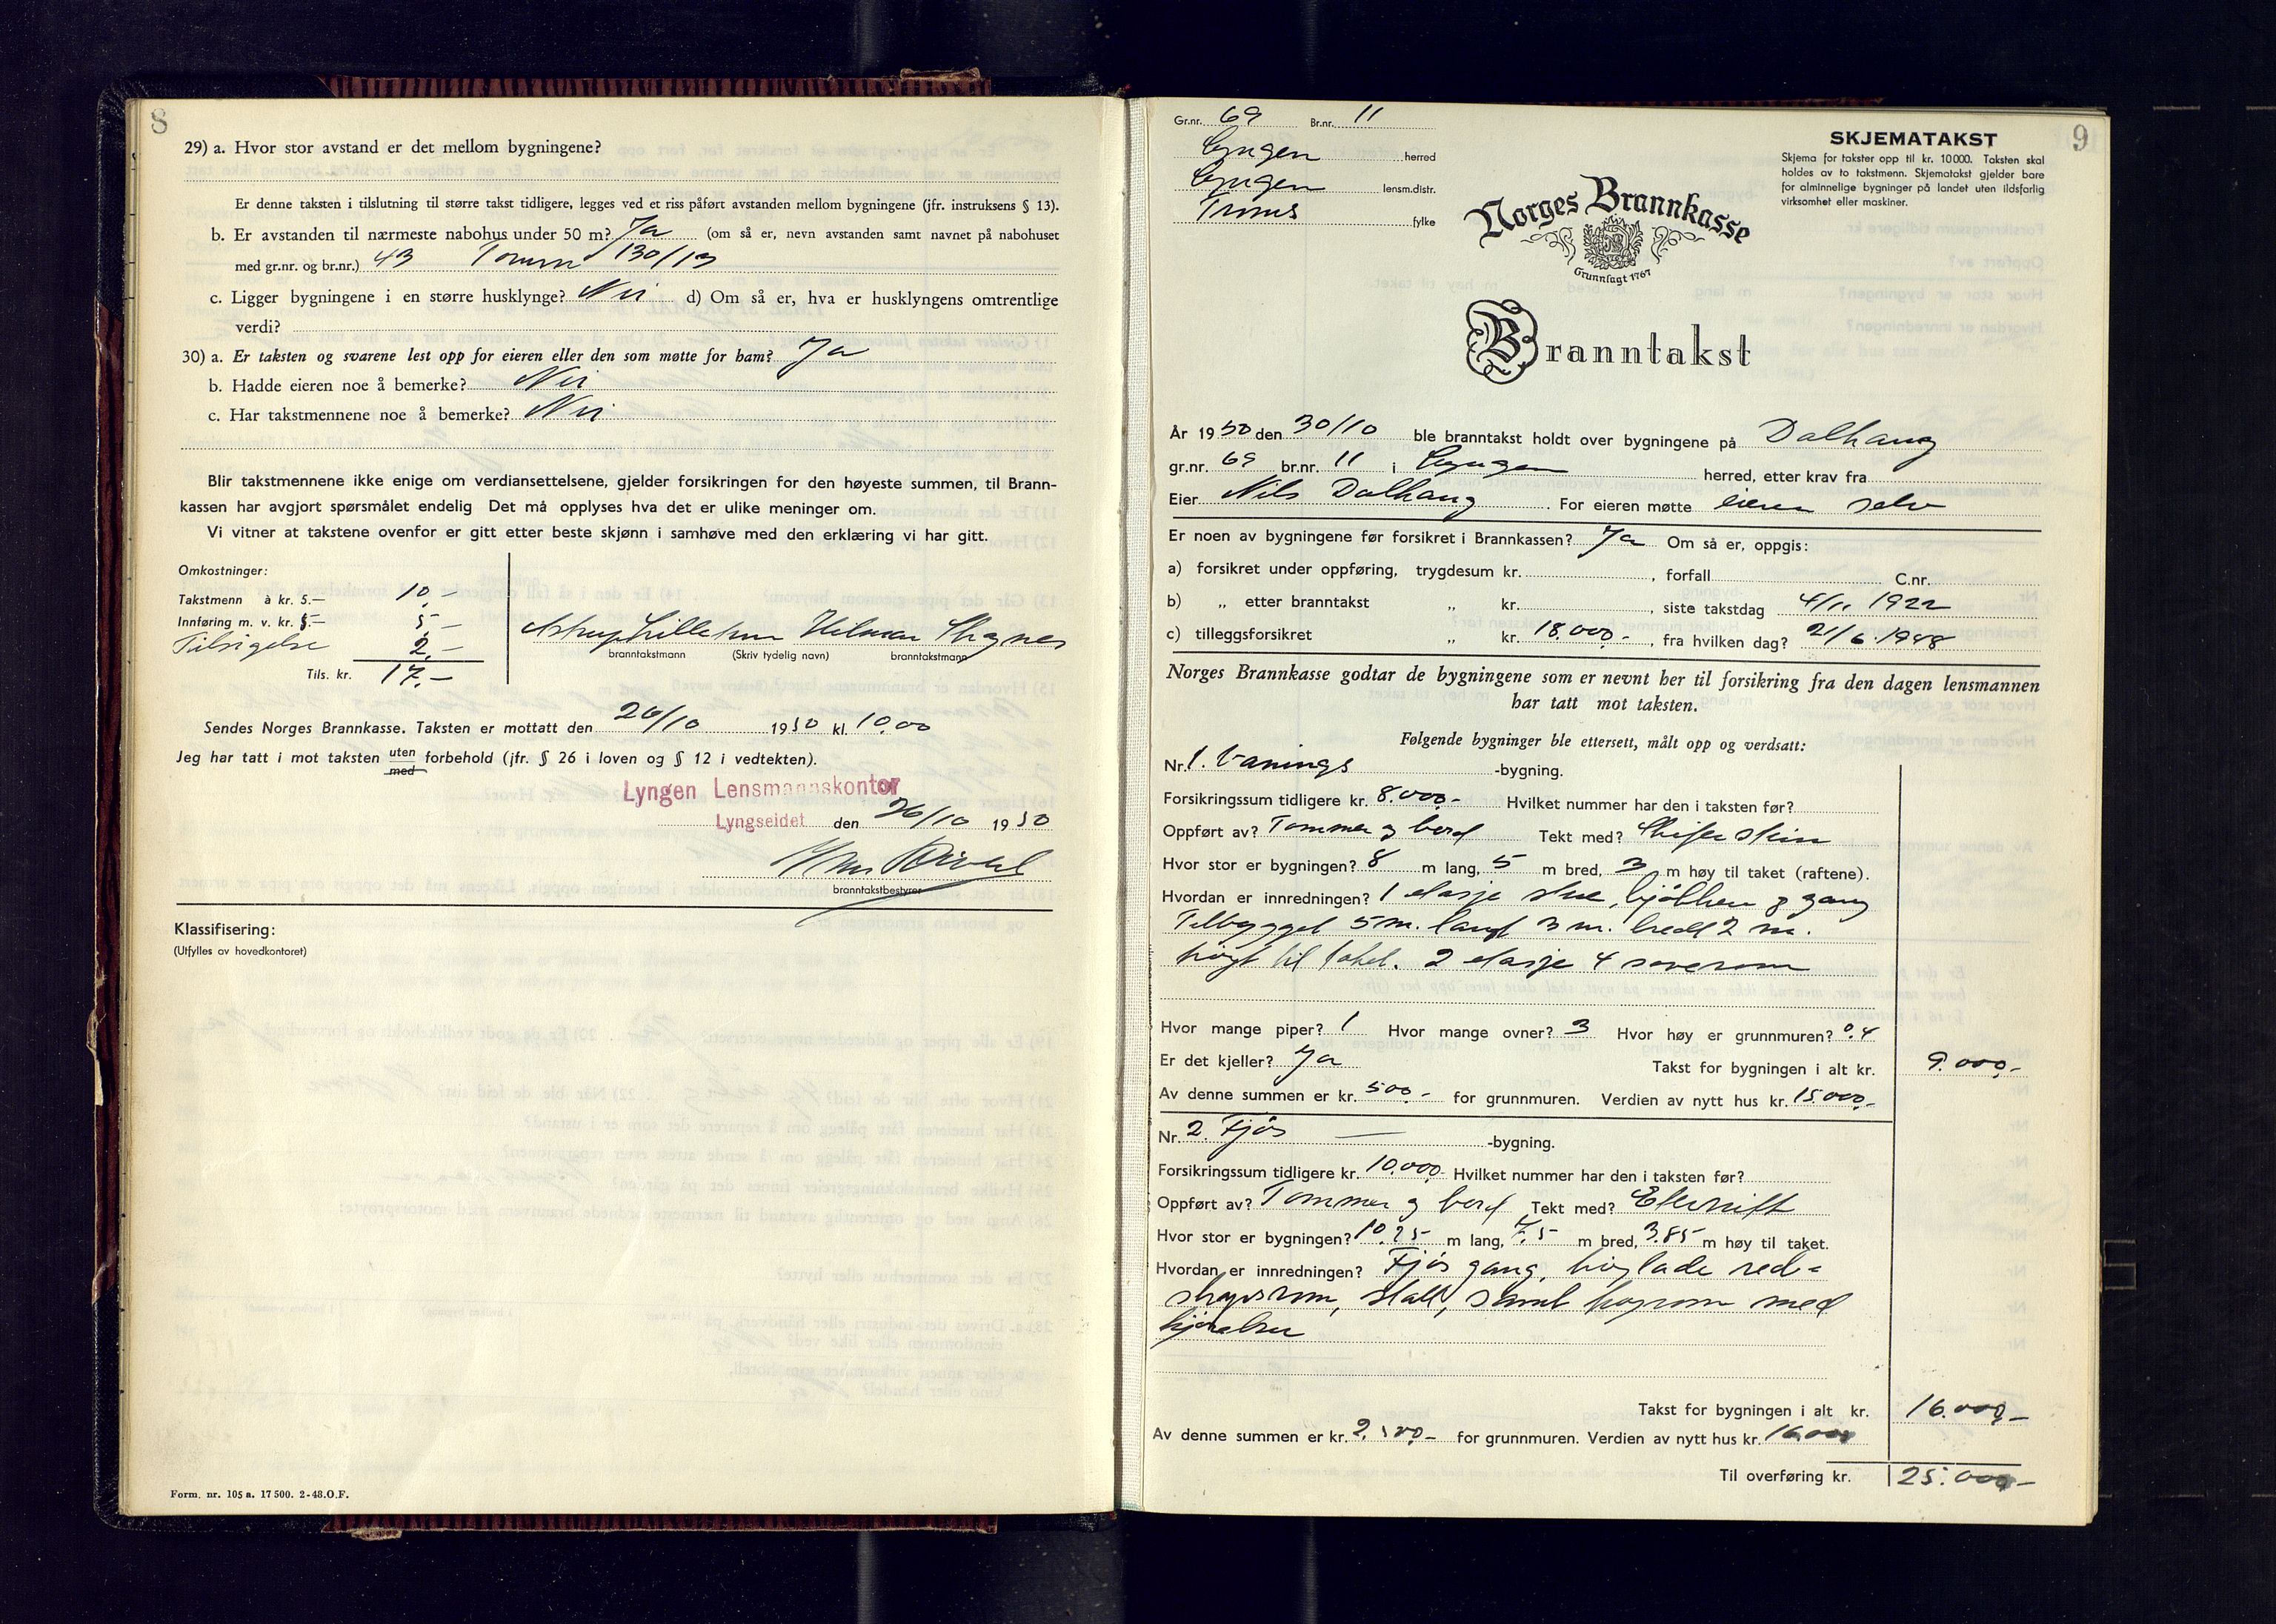 8
29) a. Hvor stor avstand er det mellom bygningene?
Er denne taksten i tilslutning til større takst tidligere, legges ved et riss påført avstanden mellom bygningene (jfr. instruksens § 13).
b. Er avstanden til nærmeste nabohus under 50 m? Ja (om så er, nevn avstanden samt navnet på nabohuset
med gr.nr. og br.nr.) 43 130/13
c. Ligger bygningene i en større husklynge? Nei d) Om så er, hva er husklyngens omtrentlige
verdi?
30) a. Er taksten og svarene lest opp for eieren eller den som møtte for ham? Ja
b. Hadde eieren noe å bemerke? Nei
c. Har takstmennene noe å bemerke? Nei
Blir takstmennene ikke enige om verdiansettelsene, gjelder forsikringen for den høyeste summen, til Brann-
kassen har avgjort spørsmålet endelig Det må opplyses hva det er ulike meninger om.
Vi vitner at takstene ovenfor er gitt etter beste skjønn i samhøve med den erklæring vi har gitt.
Omkostninger:
Takstmenn à kr. 5.— 10.-
Innføring m. v. kr. 5.— 5.-
Tilsigelse 2.-
Tils. kr. 17.-
Hilmar
branntakstmann (Skriv tydelig navn) branntakstmann
Sendes Norges Brannkasse. Taksten er mottatt den 26/10 1950 kl. 10.00
Jeg har tatt i mot taksten uten forbehold (jfr. § 26 i loven og § 12 i vedtekten).
med
Lyngen Lensmannskontor
Lyngseidet den 26/10 1950
branntakstbestyrer
Klassifisering:
(Utfylles av hovedkontoret)
Form. nr. 105 a. 17 500. 2-48. O.F.
9
Gr.nr. 69 Br.nr. 11
Lyngen herred
Lyngen lensm.distr.
Troms fylke
SKJEMATAKST
Skjema for takster opp til kr. 10 000. Taksten skal
holdes av to takstmenn. Skjematakst gjelder bare
for alminnelige bygninger på landet uten ildsfarlig
virksomhet eller maskiner.
Norges Brannkasse
Grunnlagt 1767
Branntakst
År 1950 den 30/10 ble branntakst holdt over bygningene på Dalhaug
gr.nr. 69 br.nr. 11 i Lyngen herred, etter krav fra
Eier Nils Dalhaug. For eieren møtte eieren selv
Er noen av bygningene før forsikret i Brannkassen? Ja Om så er, oppgis:
a) forsikret under oppføring, trygdesum kr. , forfall C.nr.
b) „ etter branntakst „ kr. , siste takstdag 4/11 1922
c) tilleggsforsikret „ kr. 18.000.- , fra hvilken dag? 21/6 1948
Norges Brannkasse godtar de bygningene som er nevnt her til forsikring fra den dagen lensmannen
har tatt mot taksten.
Følgende bygninger ble ettersett, målt opp og verdsatt:
Nr. 1. Vånings -bygning.
Forsikringssum tidligere kr. 8.000.- Hvilket nummer har den i taksten før?
Oppført av? Tømmer og bord Tekt med? Skiferstein
Hvor stor er bygningen? 8 m lang, 5 m bred, 3 m høy til taket (raftene).
Hvordan er innredningen? 1 etasje stue, kjøkken og gang
Tilbygget 5 m. langt 3 m. bredt 2 m.
høgt til taket. 2 etasje 4 soverom
Hvor mange piper? 1 Hvor mange ovner? 3 Hvor høy er grunnmuren? 0.4
Er det kjeller? Ja Takst for bygningen i alt kr. 9.000.-
Av denne summen er kr. 500.- for grunnmuren. Verdien av nytt hus kr. 15.000.-
Nr. 2. Fjøs -bygning.
Forsikringssum tidligere kr. 10.000.- Hvilket nummer har den i taksten før?
Oppført av? Tømmer og bord Tekt med? Eternitt
Hvor stor er bygningen? 10.25 m lang, 7.5 m bred, 3.85 m høy til taket.
Hvordan er innredningen? Fjøs gang, høylade red-
skapsrom, stall, samt høyrom med
Takst for bygningen i alt kr. 16.000.-
Av denne summen er kr. 2.500.- for grunnmuren. Verdien av nytt hus kr. 16.000
Til overføring kr. 25.000.-